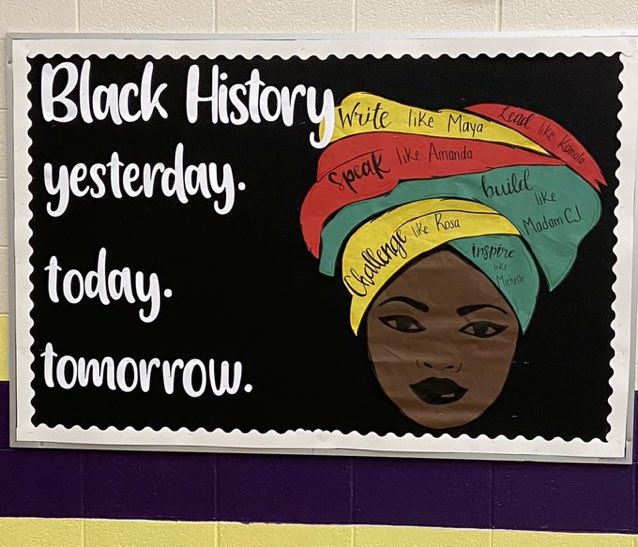 Black History
yesterday.
today.
tomorrow.
Write like Maya
Lead like Kamala
Speak like Amanda
build
like
Madam CJ
Challenge like Rosa
inspire
like
Michelle